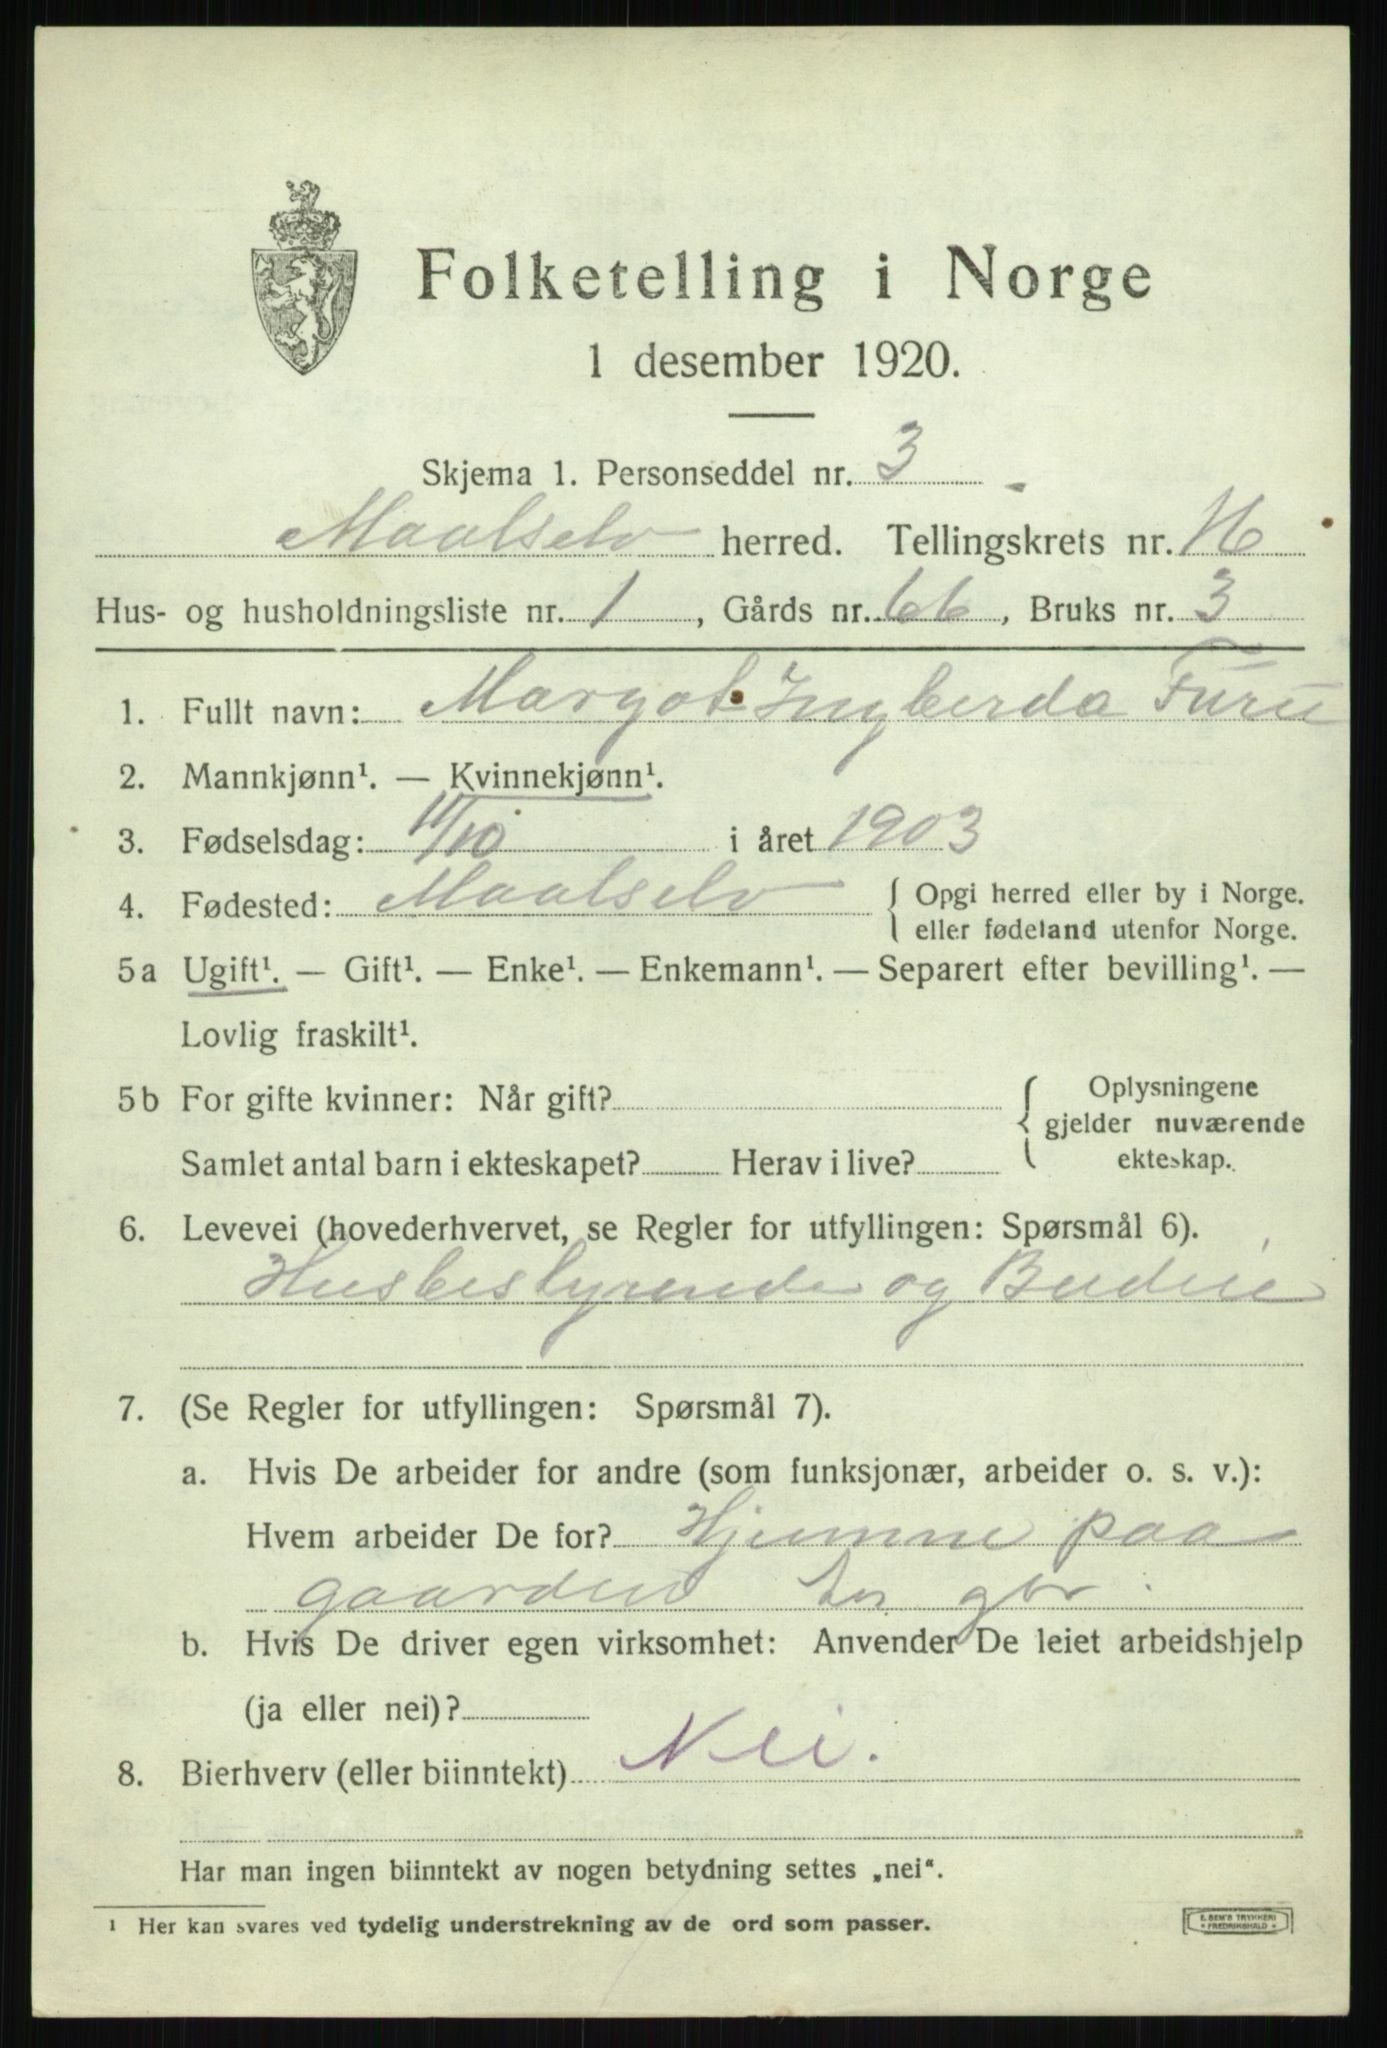 Folketelling i Norge
1 desember 1920.
Skjema 1. Personseddel nr. 3
Maalselv herred. Tellingskrets nr.
Hus- og husholdningsliste nr. 1, Gårds nr. 66, Bruks nr. 3
1. Fullt navn: Margot Ingberda Furu
2. Mannkjønn¹. — Kvinnekjønn¹.
3. Fødselsdag: 11/10 i året 1903
4. Fødested: Maalselv { Opgi herred eller by i Norge.
eller fødeland utenfor Norge.
5a Ugift¹. — Gift¹. — Enke¹. — Enkemann¹. — Separert efter bevilling¹. —
Lovlig fraskilt¹.
5b For gifte kvinner: Når gift? { Oplysningene
gjelder nuværende
Samlet antal barn i ekteskapet? Herav i live? ekteskap.
6. Levevei (hovederhvervet, se Regler for utfyllingen: Spørsmål 6).
Husbestyrende og Budeie
7. (Se Regler for utfyllingen: Spørsmål 7).
a. Hvis De arbeider for andre (som funksjonær, arbeider o. s. v.):
Hvem arbeider De for? Hjemme paa
gaarden
b. Hvis De driver egen virksomhet: Anvender De leiet arbeidshjelp
(ja eller nei)?
8. Bierhverv (eller biinntekt) Nei.
Har man ingen biinntekt av nogen betydning settes „nei“.
¹ Her kan svares ved tydelig understrekning av de ord som passer.
E. SEM'S TRYKKERI
* FREDRIKSHALD *